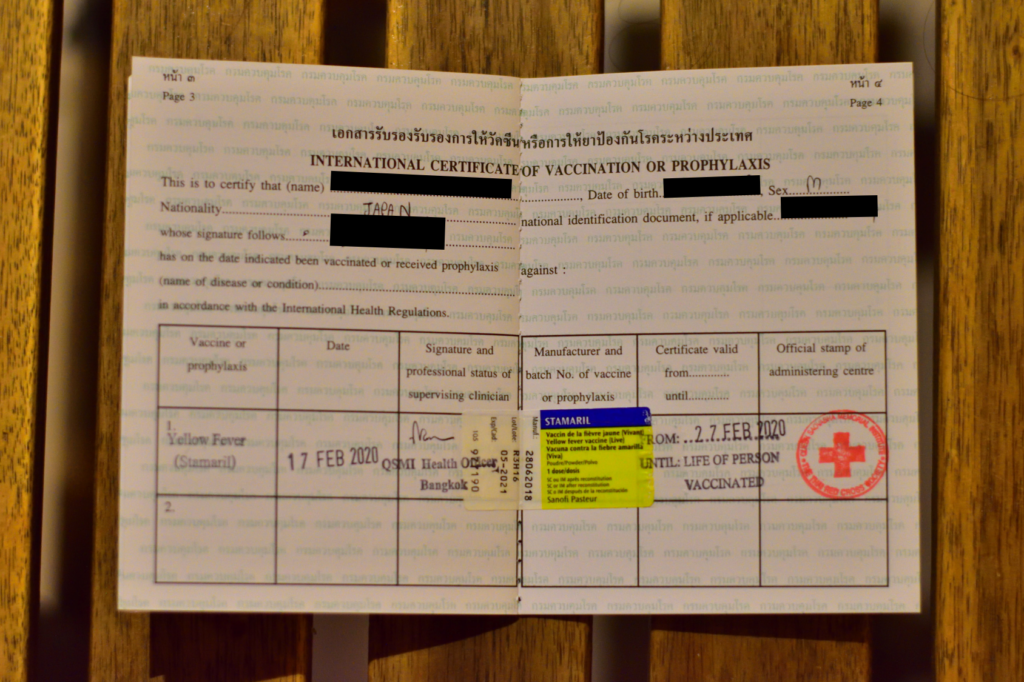 หน้า ๓
Page 3
หน้า ๔
Page 4
เอกสารรับรองรับรองการให้วัคซีนหรือการให้ยาป้องกันโรคระหว่างประเทศ
INTERNATIONAL CERTIFICATE OF VACCINATION OR PROPHYLAXIS
This is to certify that (name) Date of birth Sex M
Nationality JAPAN national identification document, if applicable
whose signature follows
has on the date indicated been vaccinated or received prophylaxis against :
(name of disease or condition)
in accordance with the International Health Regulations.
Vaccine or
prophylaxis
Date
Signature and
professional status of
supervising clinician
Manufacturer and
batch No. of vaccine
or prophylaxis
Certificate valid
from............
until............
Official stamp of
administering centre
1.
Yellow Fever
(Stamaril)
17 FEB 2020
QSMI Health Officer
Bangkok
Manuf.
28062018
R3H16
Exp/Cad.
05-2021
STAMARIL
Vaccin de la fièvre jaune (Vivant)
Yellow fever vaccine (Live)
Vacuna contra la fiebre amarilla
(Viva)
Poudre/Powder/Polvo
1 dose/dosis
SC ou IM après reconstitution
SC or IM after reconstitution
SC o IM después de la reconstitución
Sanofi Pasteur
FROM: ..27.FEB.2020
UNTIL: LIFE OF PERSON
VACCINATED
2.
กรมควบคุมโรค